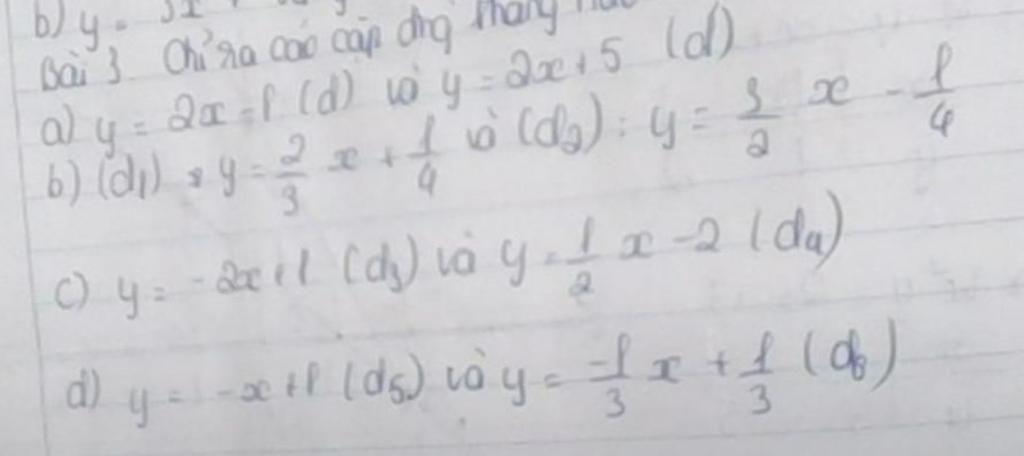 b) y = 3x
Bài 3 Chỉ ra các cặp đng thẳng
a) y = 2x - 1 (d) và y = 2x + 5 (d)
b) (d1) : y = 2/3 x + 1/4 và (d2) : y = 3/2 x - 1/4
c) y = -2x + 1 (d3) và y = 1/2 x - 2 (d4)
d) y = -x + 1 (d5) và y = -1/3 x + 1/3 (d6)